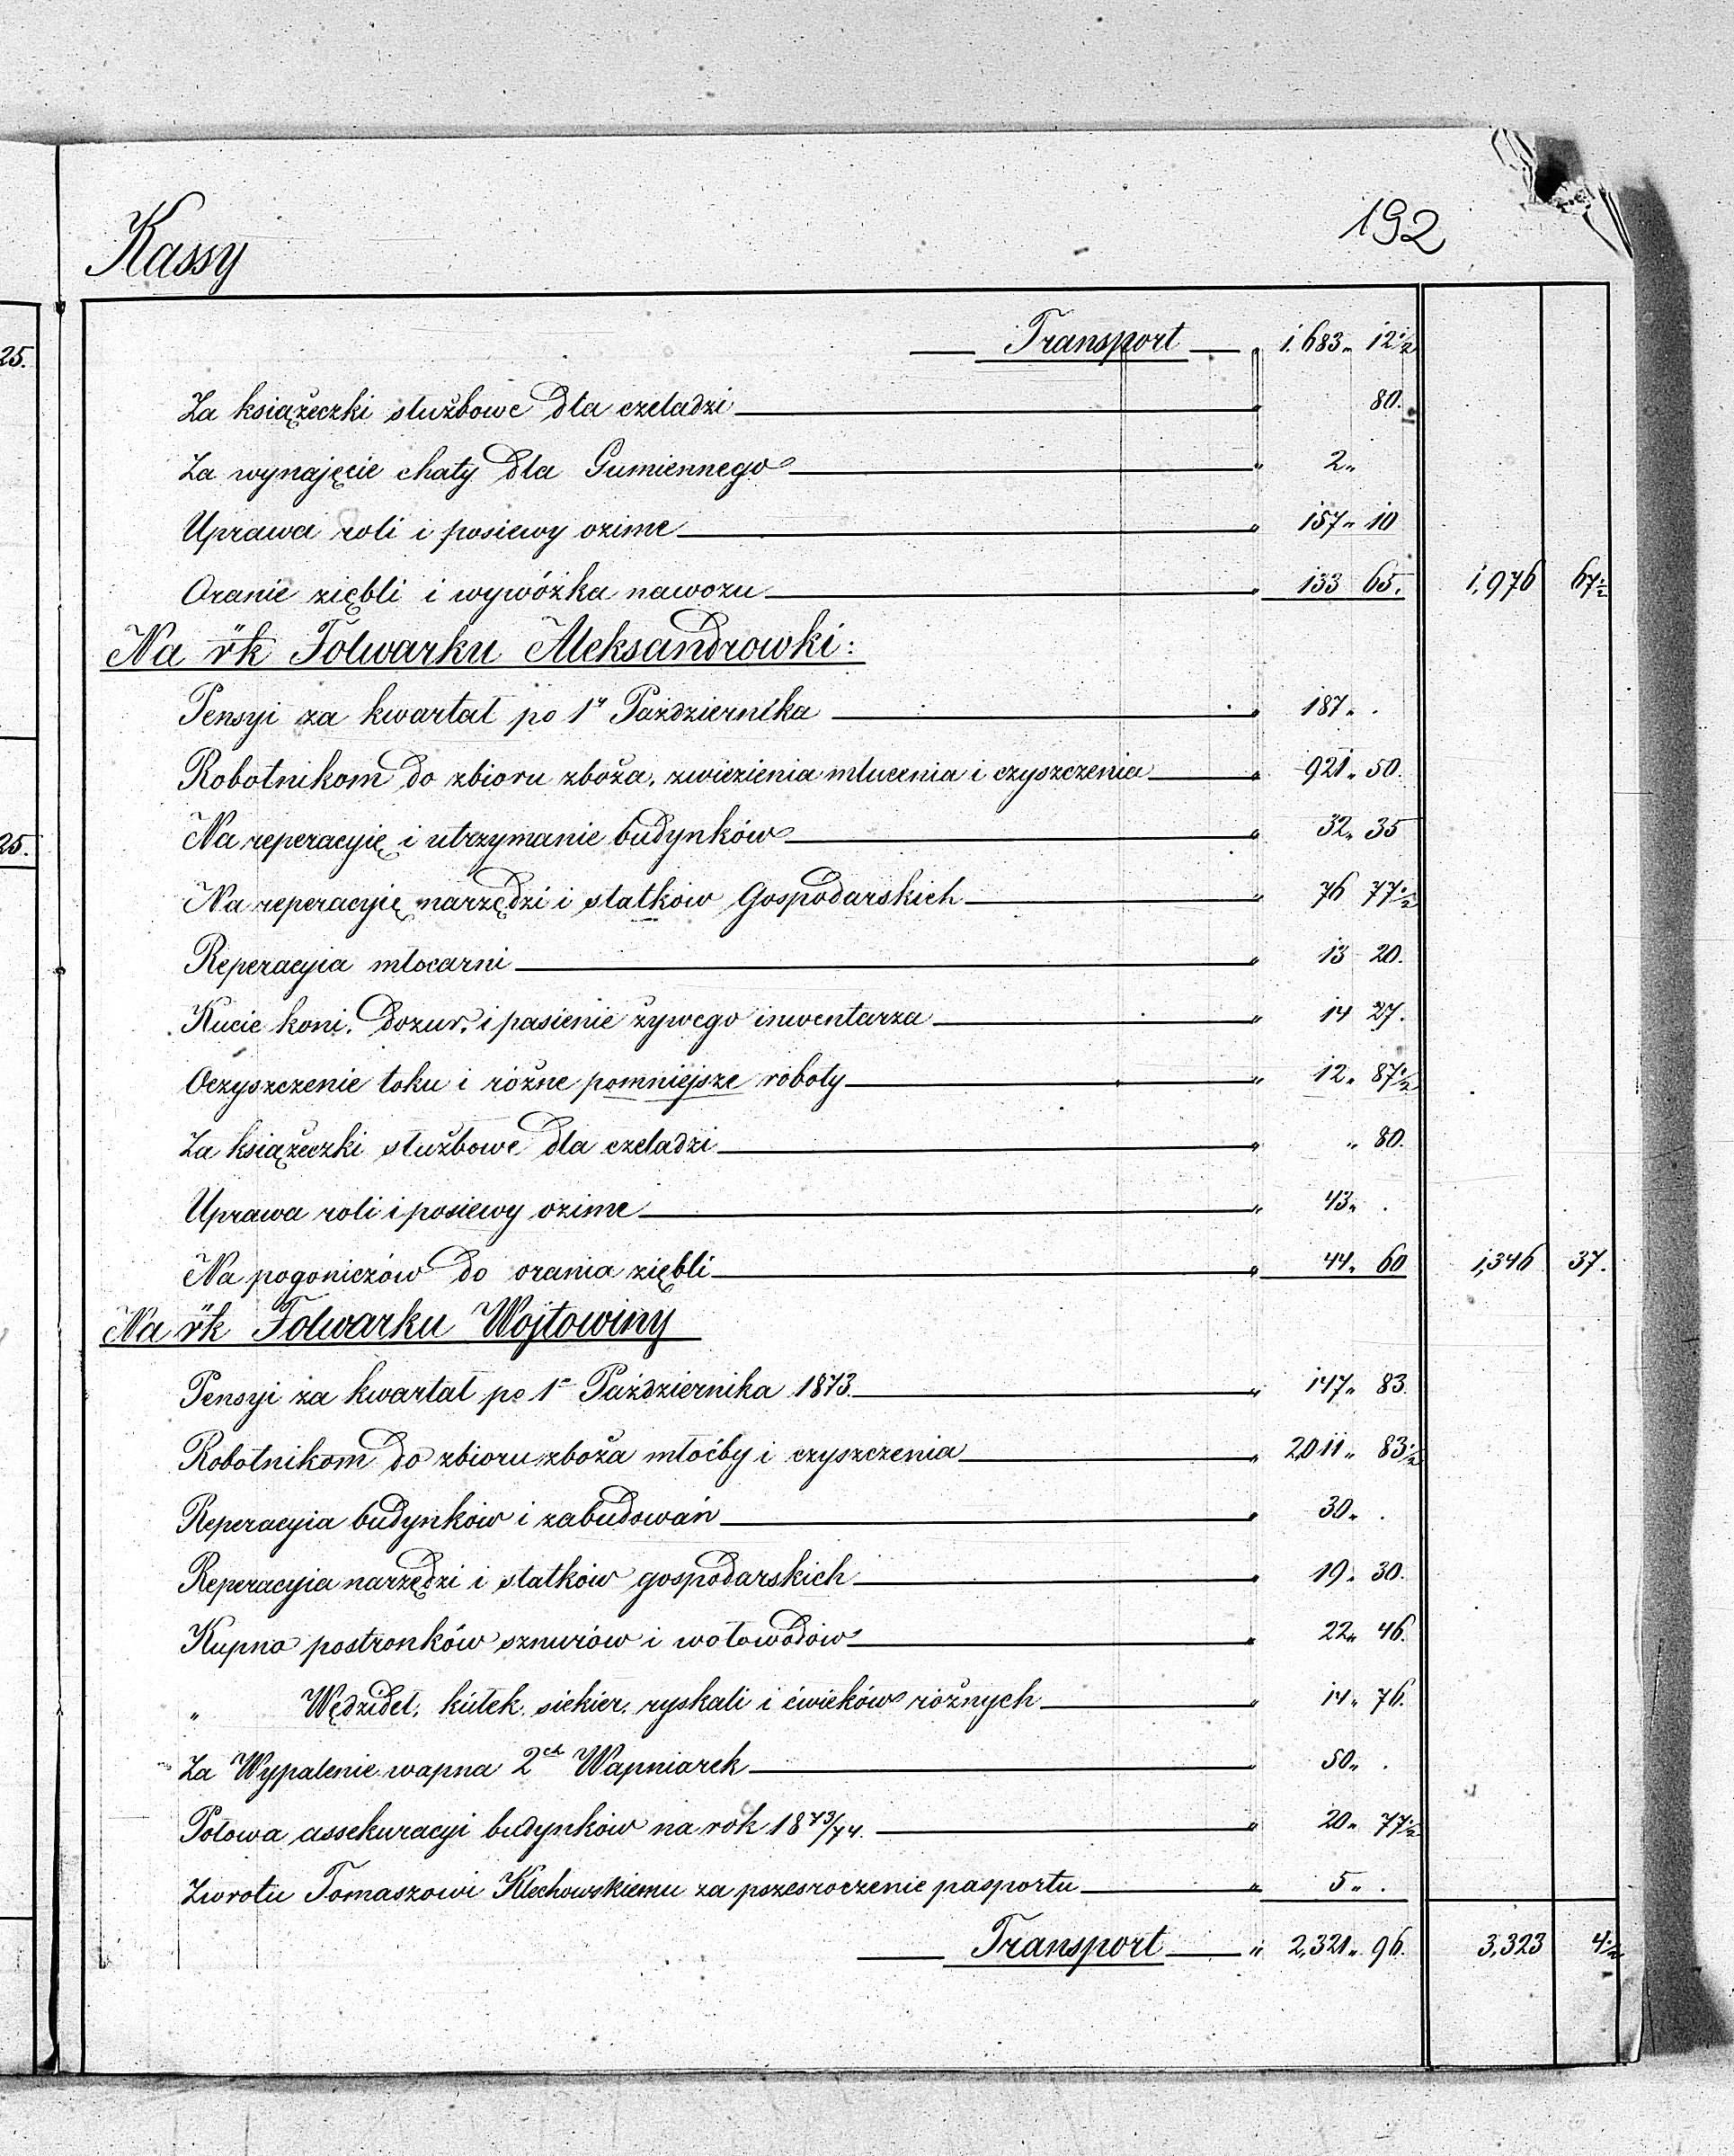 192
Kassy
25.
25.
Transport „ 1.683 „ 12 1/2
Za książeczki służbowe dla czeladzi „ 80.
Za wynajęcie chaty dla Gumiennego „ 2 „
Uprawa roli i posiewy ozime „ 157 „ 10
Oranie ziębli i wywózka nawozu „ 133 65. 1,976 67 1/2
Na r̈k Folwarku Aleksandrowki:
Pensyi za kwartał po 1 Października „ 187 „ .
Robotnikom do zbioru zboża, zwiezienia młucenia i czyszczenia „ 921 „ 50.
Na reperacyię i utrzymanie budynków „ 32 „ 35
Na reperacyię narzędzi i statkow Gospodarskich „ 76 77 1/2
Reperacyia młocarni „ 13 20.
Kucie koni, dozur, i pasienie żywego inwentarza „ 14 27.
Oczyszczenie toku i różne pomniejsze roboty „ 12 „ 87 1/2
Za książeczki służbowe dla czeladzi „ „ 80.
Uprawa roli i posiewy ozime „ 43 „ .
Na pogoniczów do orania ziębli „ 44 „ 60 1,346 37.
Na r̈k Folwarku Wojtowiny
Pensyi za kwartał po 1 Października 1873. „ 147 „ 83.
Robotnikom do zbioru zboża młoćby i czyszczenia „ 2,011 „ 83 1/2
Reperacyia budynków i zabudowań „ 30 „ .
Reperacyia narzędzi i statków gospodarskich „ 19 „ 30.
Kupno postronków sznurów i wołowodów „ 22 „ 46.
„ Wędzideł, kułek, siekier, ryskali i ćwieków różnych „ 14 „ 76.
Za Wypalenie wapna 2ch Wapniarek „ 50 „ .
Połowa assekuracyi budynków na rok 1873/74. „ 20 „ 77 1/2
Zwrotu Tomaszowi Klechowskiemu za pszesroczenie pasportu „ 5 „ .
Transport „ 2,321 „ 96. 3,323 4 1/2